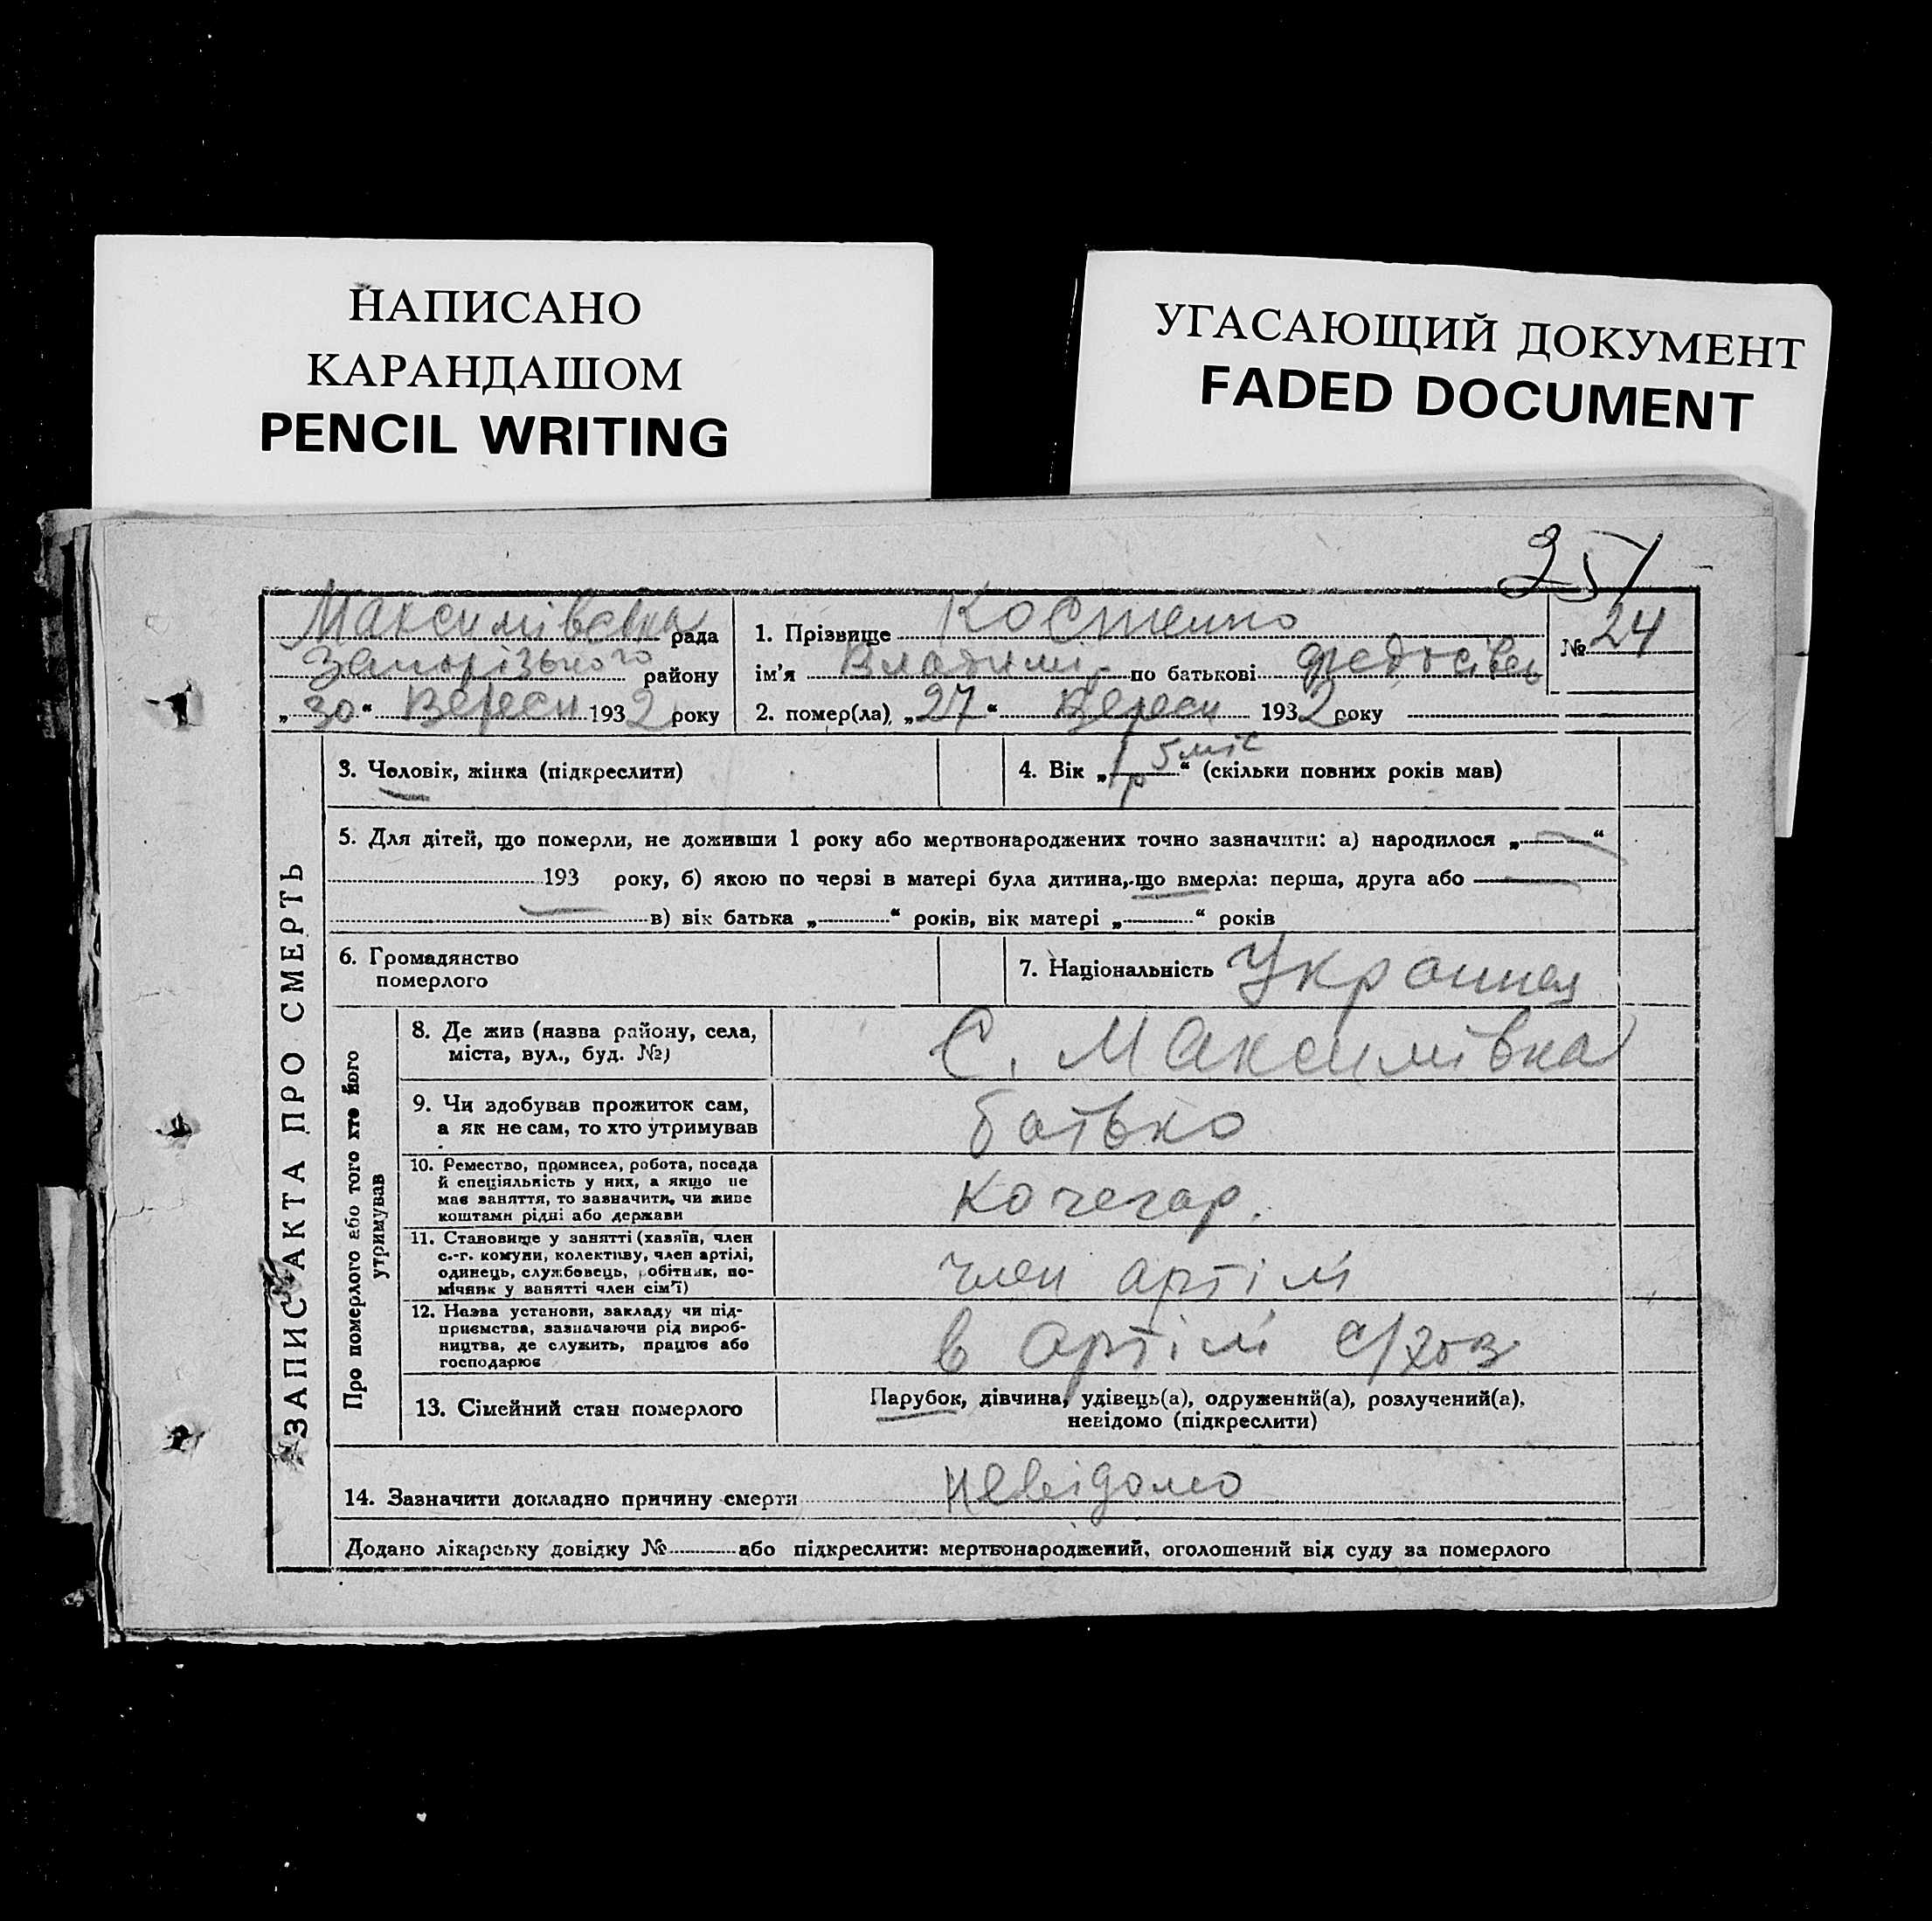 НАПИСАНО
КАРАНДАШОМ
PENCIL WRITING
УГАСАЮЩИЙ ДОКУМЕНТ
FADED DOCUMENT
251
Максимівська рада
Запорізького району
„30“ Вересн 1932 року
1. Прізвище Костенко
ім’я Владимір по батькові Федосієв
2. помер(ла) „27“ Вересн 1932 року
№ 24
ЗАПИС АКТА ПРО СМЕРТЬ
3. Чоловік, жінка (підкреслити)
4. Вік „1 р 5 міс“ (скільки повних років мав)
5. Для дітей, що померли, не доживши 1 року або мертвонароджених точно зазначити: а) народилося „—“
193 року, б) якою по черзі в матері була дитина, що вмерла: перша, друга або
в) вік батька „ “ років, вік матері „ “ років
6. Громадянство
померлого
7. Національність Украинец
Про померлого або того хто його
утримував
8. Де жив (назва району, села,
міста, вул., буд. №)
С. Максимівка
9. Чи здобував прожиток сам,
а як не сам, то хто утримував
батько
10. Ремество, промисел, робота, посада
й спеціяльність у них, а якщо не
має заняття, то зазначити, чи живе
коштами рідні або держави
Кочегар.
11. Становище у занятті (хазяїн, член
с.-г. комуни, колективу, член артілі,
одинець, службовець, робітник, по-
мічник у занятті член сім’ї)
член артілі
12. Назва установи, закладу чи під-
приємства, зазначаючи рід вироб-
ництва, де служить, працює або
господарює
в артілі с/хоз
13. Сімейний стан померлого
Парубок, дівчина, удівець(а), одружений(а), розлучений(а),
невідомо (підкреслити)
14. Зазначити докладно причину смерти невідомо
Додано лікарську довідку № або підкреслити: мертвонароджений, оголошений від суду за померлого